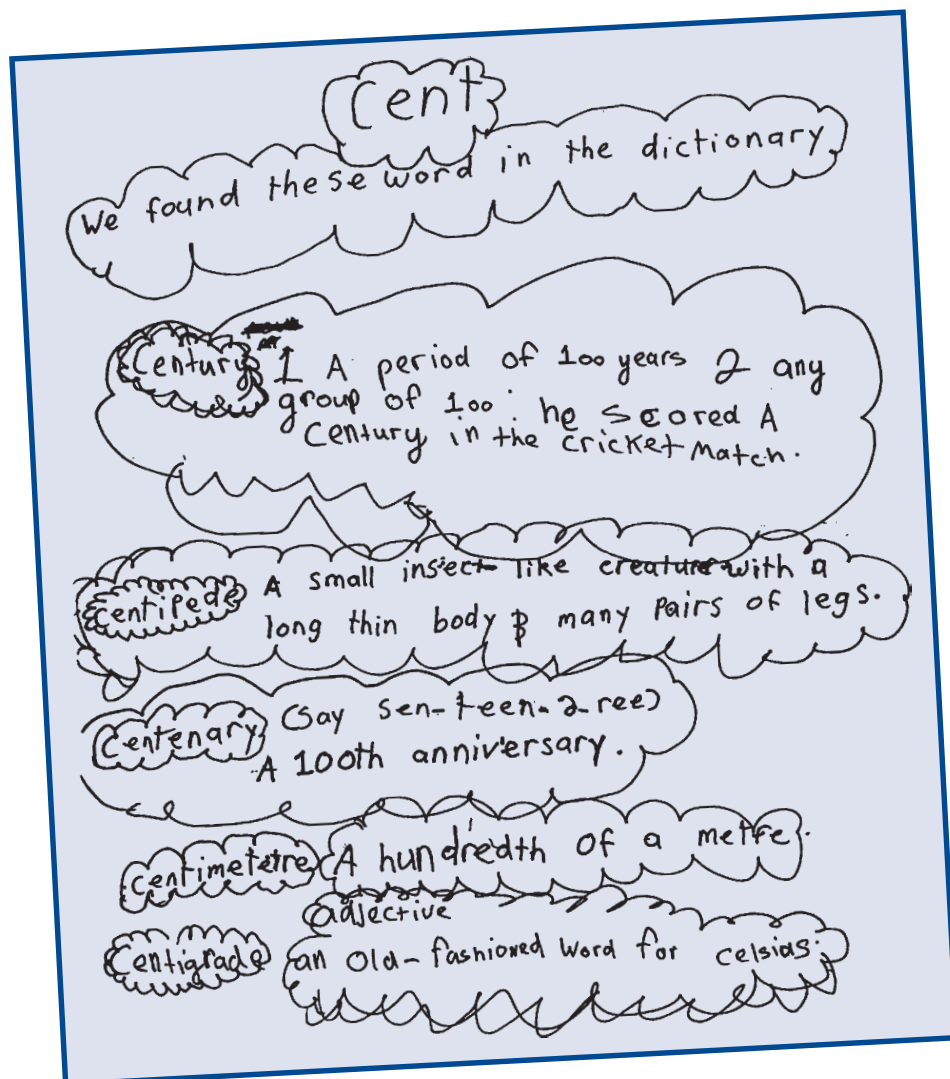 Cent
We found these word in the dictionary
Century 1 A period of 100 years 2 any
group of 100: he scored A
Century in the cricket Match.
Centipede A small insect-like creature with a
long thin body & many pairs of legs.
Centenary (Say sen-teen-a-ree)
A 100th anniversary.
centimetetre A hundredth of a metre.
adjective
Centigrade an old-fashioned word for celsias.